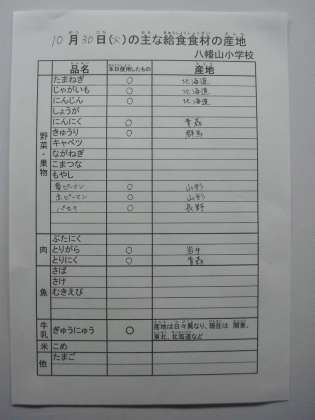 10月30日(火)の主な給食食材の産地
八幡山小学校
品名 本日使用したもの 産地
野菜・果物
たまねぎ ○ 北海道
じゃがいも ○ 北海道
にんじん ○ 北海道
しょうが
にんにく ○ 青森
きゅうり ○ 群馬
キャベツ
ながねぎ
こまつな
もやし
青ピーマン ○ 山形
赤ピーマン ○ 山形
パセリ ○ 長野
肉
ぶたにく
とりがら ○ 岩手
とりにく ○ 青森
魚
さば
さけ
むきえび
牛乳 ぎゅうにゅう ○ 産地は日々異なり、現在は 関東、
東北、北海道など
米 こめ
他 たまご